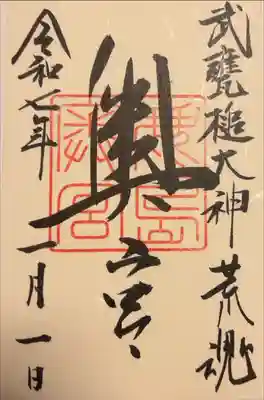 武甕槌大神 荒魂
奥宮
令和七年 一月 一日